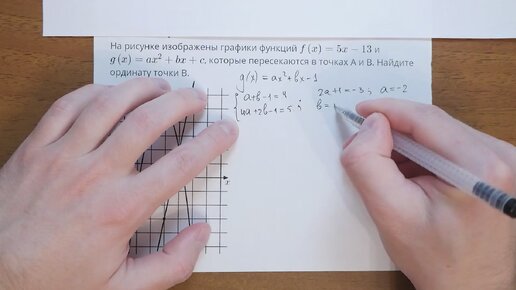 На рисунке изображены графики функций f (x) = 5x − 13 и
g (x) = ax² + bx + c, которые пересекаются в точках A и B. Найдите
ординату точки B.
g(x) = ax² + bx - 1
a + b - 1 = 4
4a + 2b - 1 = 5 ;
2a + 1 = -3 ; a = -2
b =
x